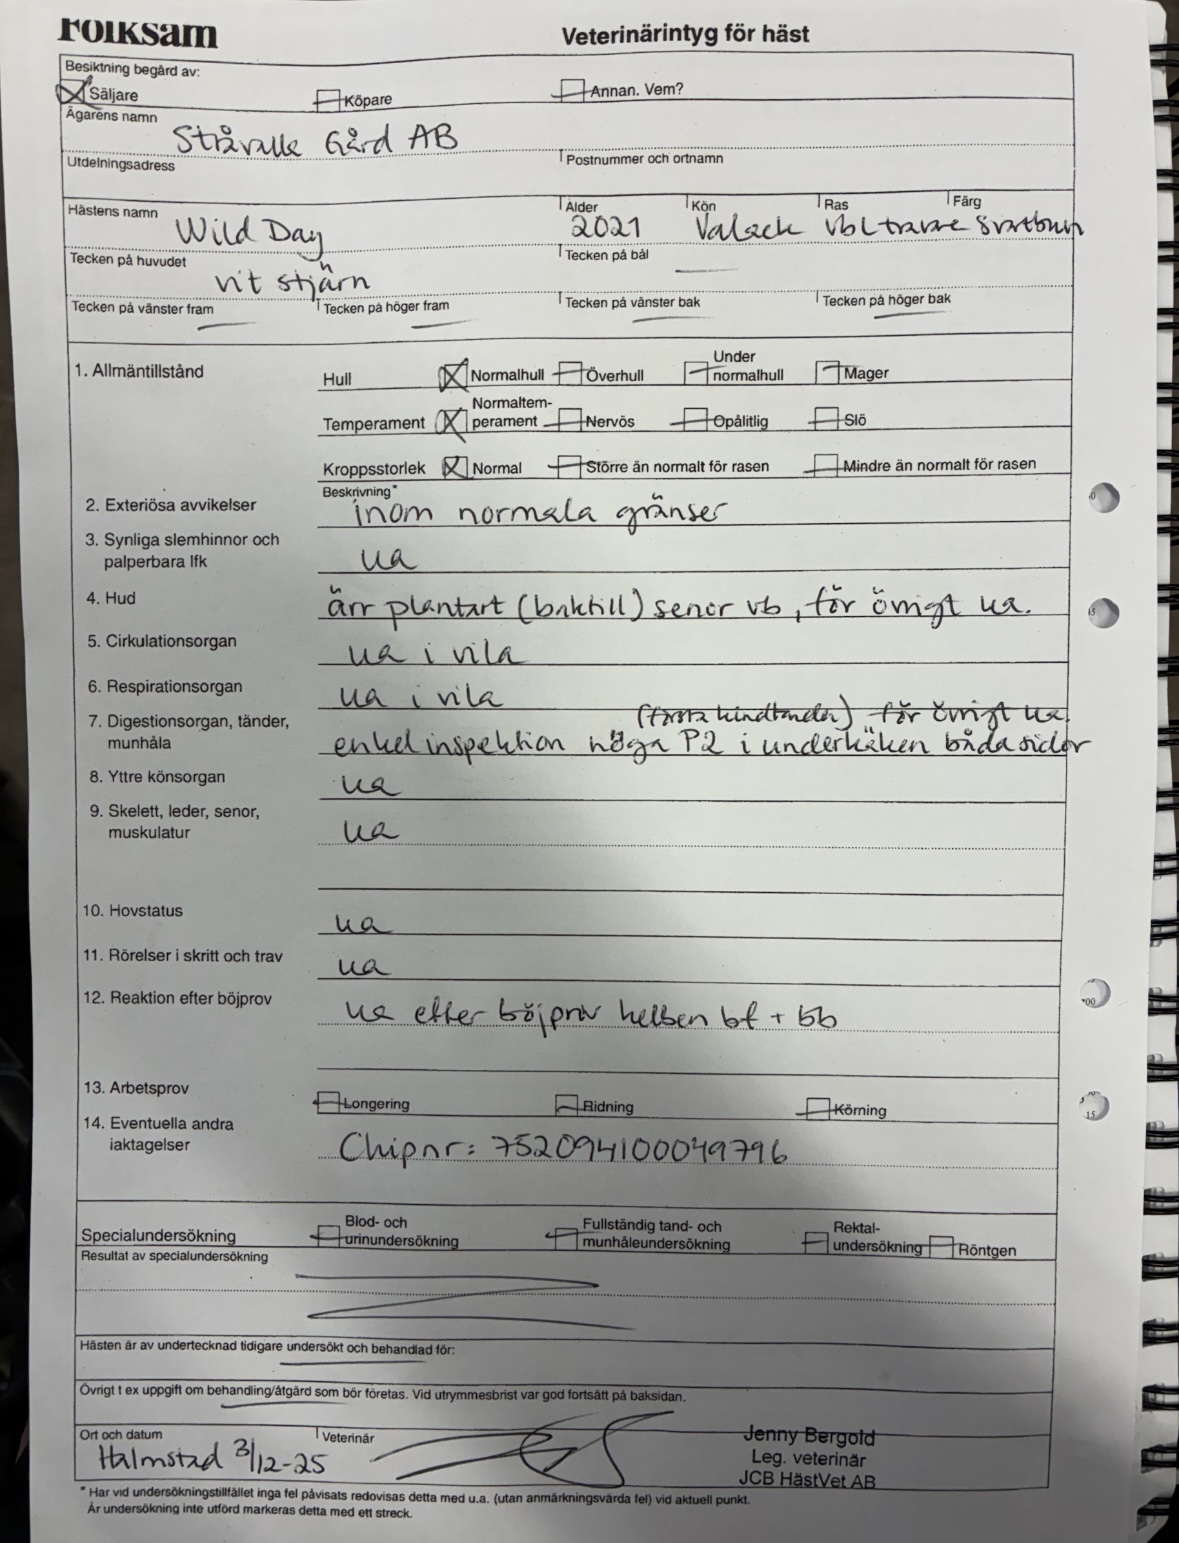 Folksam
Veterinärintyg för häst
Besiktning begärd av:
Säljare
Köpare
Annan. Vem?
Ägarens namn
Stråvalla Gård AB
Utdelningsadress
Postnummer och ortnamn
Hästens namn
Ålder
Kön
Ras
Färg
Wild Day
2021
Valack
vbl travare
svartbrun
Tecken på huvudet
Tecken på bål
vit stjärn
Tecken på vänster fram
Tecken på höger fram
Tecken på vänster bak
Tecken på höger bak
1. Allmäntillstånd
Hull
Normalhull
Överhull
Under
normalhull
Mager
Temperament
Normaltem-
perament
Nervös
Opålitlig
Slö
Kroppsstorlek
Normal
Större än normalt för rasen
Mindre än normalt för rasen
Beskrivning*
2. Exteriösa avvikelser
inom normala gränser
3. Synliga slemhinnor och
palperbara lfk
ua
4. Hud
ärr plantart (baktill) senor vb, för övrigt ua.
5. Cirkulationsorgan
ua i vila
6. Respirationsorgan
ua i vila
7. Digestionsorgan, tänder,
munhåla
(första kindtänder) för övrigt ua.
enkel inspektion höga P2 i underkäken båda sidor
8. Yttre könsorgan
ua
9. Skelett, leder, senor,
muskulatur
ua
10. Hovstatus
ua
11. Rörelser i skritt och trav
ua
12. Reaktion efter böjprov
ua efter böjprov helben bf + bb
13. Arbetsprov
Longering
Ridning
Körning
14. Eventuella andra
iaktagelser
Chipnr: 752094100049796
Specialundersökning
Blod- och
urinundersökning
Fullständig tand- och
munhåleundersökning
Rektal-
undersökning
Röntgen
Resultat av specialundersökning
Hästen är av undertecknad tidigare undersökt och behandlad för:
Övrigt t ex uppgift om behandling/åtgärd som bör företas. Vid utrymmesbrist var god fortsätt på baksidan.
Ort och datum
Veterinär
Halmstad 3/12-25
Jenny Bergold
Leg. veterinär
JCB HästVet AB
* Har vid undersökningstillfället inga fel påvisats redovisas detta med u.a. (utan anmärkningsvärda fel) vid aktuell punkt.
Är undersökning inte utförd markeras detta med ett streck.